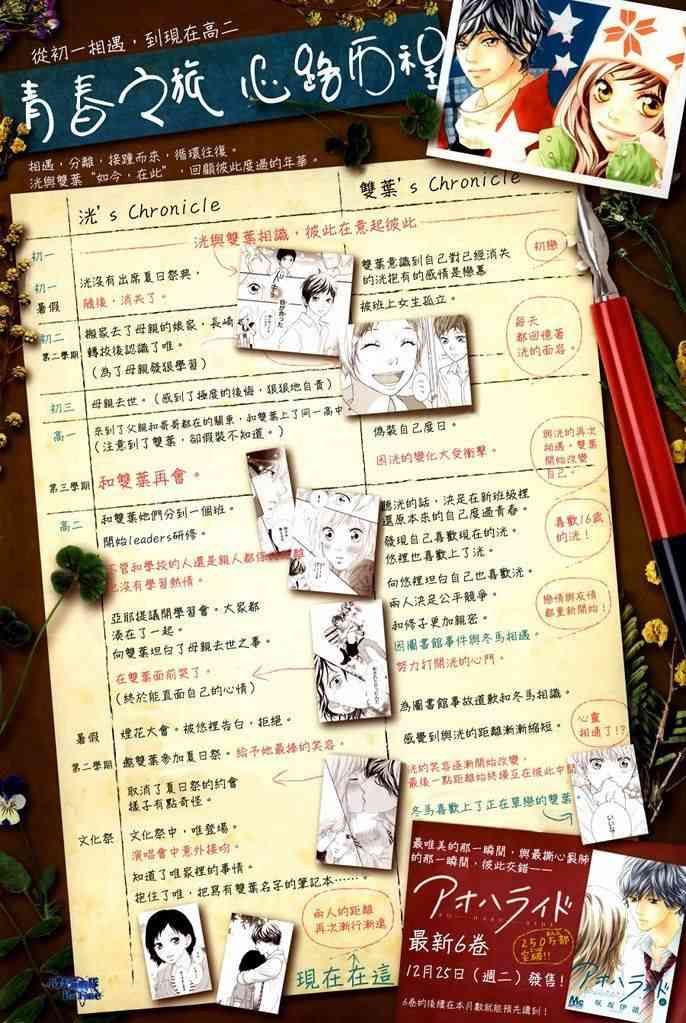 從初一相遇，到現在高二
青春之旅 心路历程
相遇，分離，接踵而來，循環往復。
洸與雙葉“如今，在此”，回顧彼此度過的年華。
洸's Chronicle
雙葉's Chronicle
初一
洸與雙葉相識，彼此在意起彼此
初一
暑假
洸沒有出席夏日祭典，
隨後，消失了。
雙葉意識到自己對已經消失
的洸抱有的感情是戀慕
初戀
被班上女生孤立。
初二
第二學期
搬家去了母親的娘家，長崎
轉校後認識了唯。
(為了母親發狠學習)
每天
都回憶著
洸的面容。
初三
母親去世。(感到了極度的後悔，狠狠地自責)
高一
來到了父親和哥哥都在的關東，和雙葉上了同一高中
(注意到了雙葉，卻假裝不知道。)
偽裝自己度日。
因洸的變化大受衝擊。
與洸的再次
相遇，雙葉
開始改變
自己。
第三學期
和雙葉再會。
高二
和雙葉她們分到一個班。
開始leaders研修。
不管和學校的人還是親人都
也沒有學習熱情。
聽洸的話，決定在新班級裡
還原本來的自己度過青春。
發現自己喜歡現在的洸。
悠裡也喜歡上了洸。
喜歡16歲
的洸！
向悠裡坦白自己也喜歡洸。
兩人決定公平競爭。
和修子更加親密。
因圖書館事件與冬馬相遇。
努力打開洸的心門。
戀情與友情
都重新開始！
亞耶提議開學習會。大家都
湊在了一起。
向雙葉坦白了母親去世之事。
在雙葉面前哭了。
(終於能直面自己的心情)
為圖書館事故道歉和冬馬相識。
感覺到與洸的距離漸漸縮短。
心靈
相通了!?
暑假
煙花大會。被悠裡告白，拒絕。
第二學期
邀雙葉參加夏日祭。給予她最棒的笑容。
取消了夏日祭的約會
樣子有點奇怪。
洸的笑容逐漸開始改變，
最後一點距離始終橫亙在彼此中間
冬馬喜歡上了正在單戀的雙葉。
文化祭
文化祭中，唯登場。
演唱會中意外接吻。
知道了唯家裡的事情。
抱住了唯，把寫有雙葉名字的筆記本……。
兩人的距離
再次漸行漸遠
現在在這
最唯美的那一瞬間，與最撕心裂肺
的那一瞬間，彼此交錯——
アオハライド
最新6卷
250万部
突破!!
12月25日（週二）發售！
6卷的後續在本月數就能預先讀到！
アオハライド
咲坂伊緒